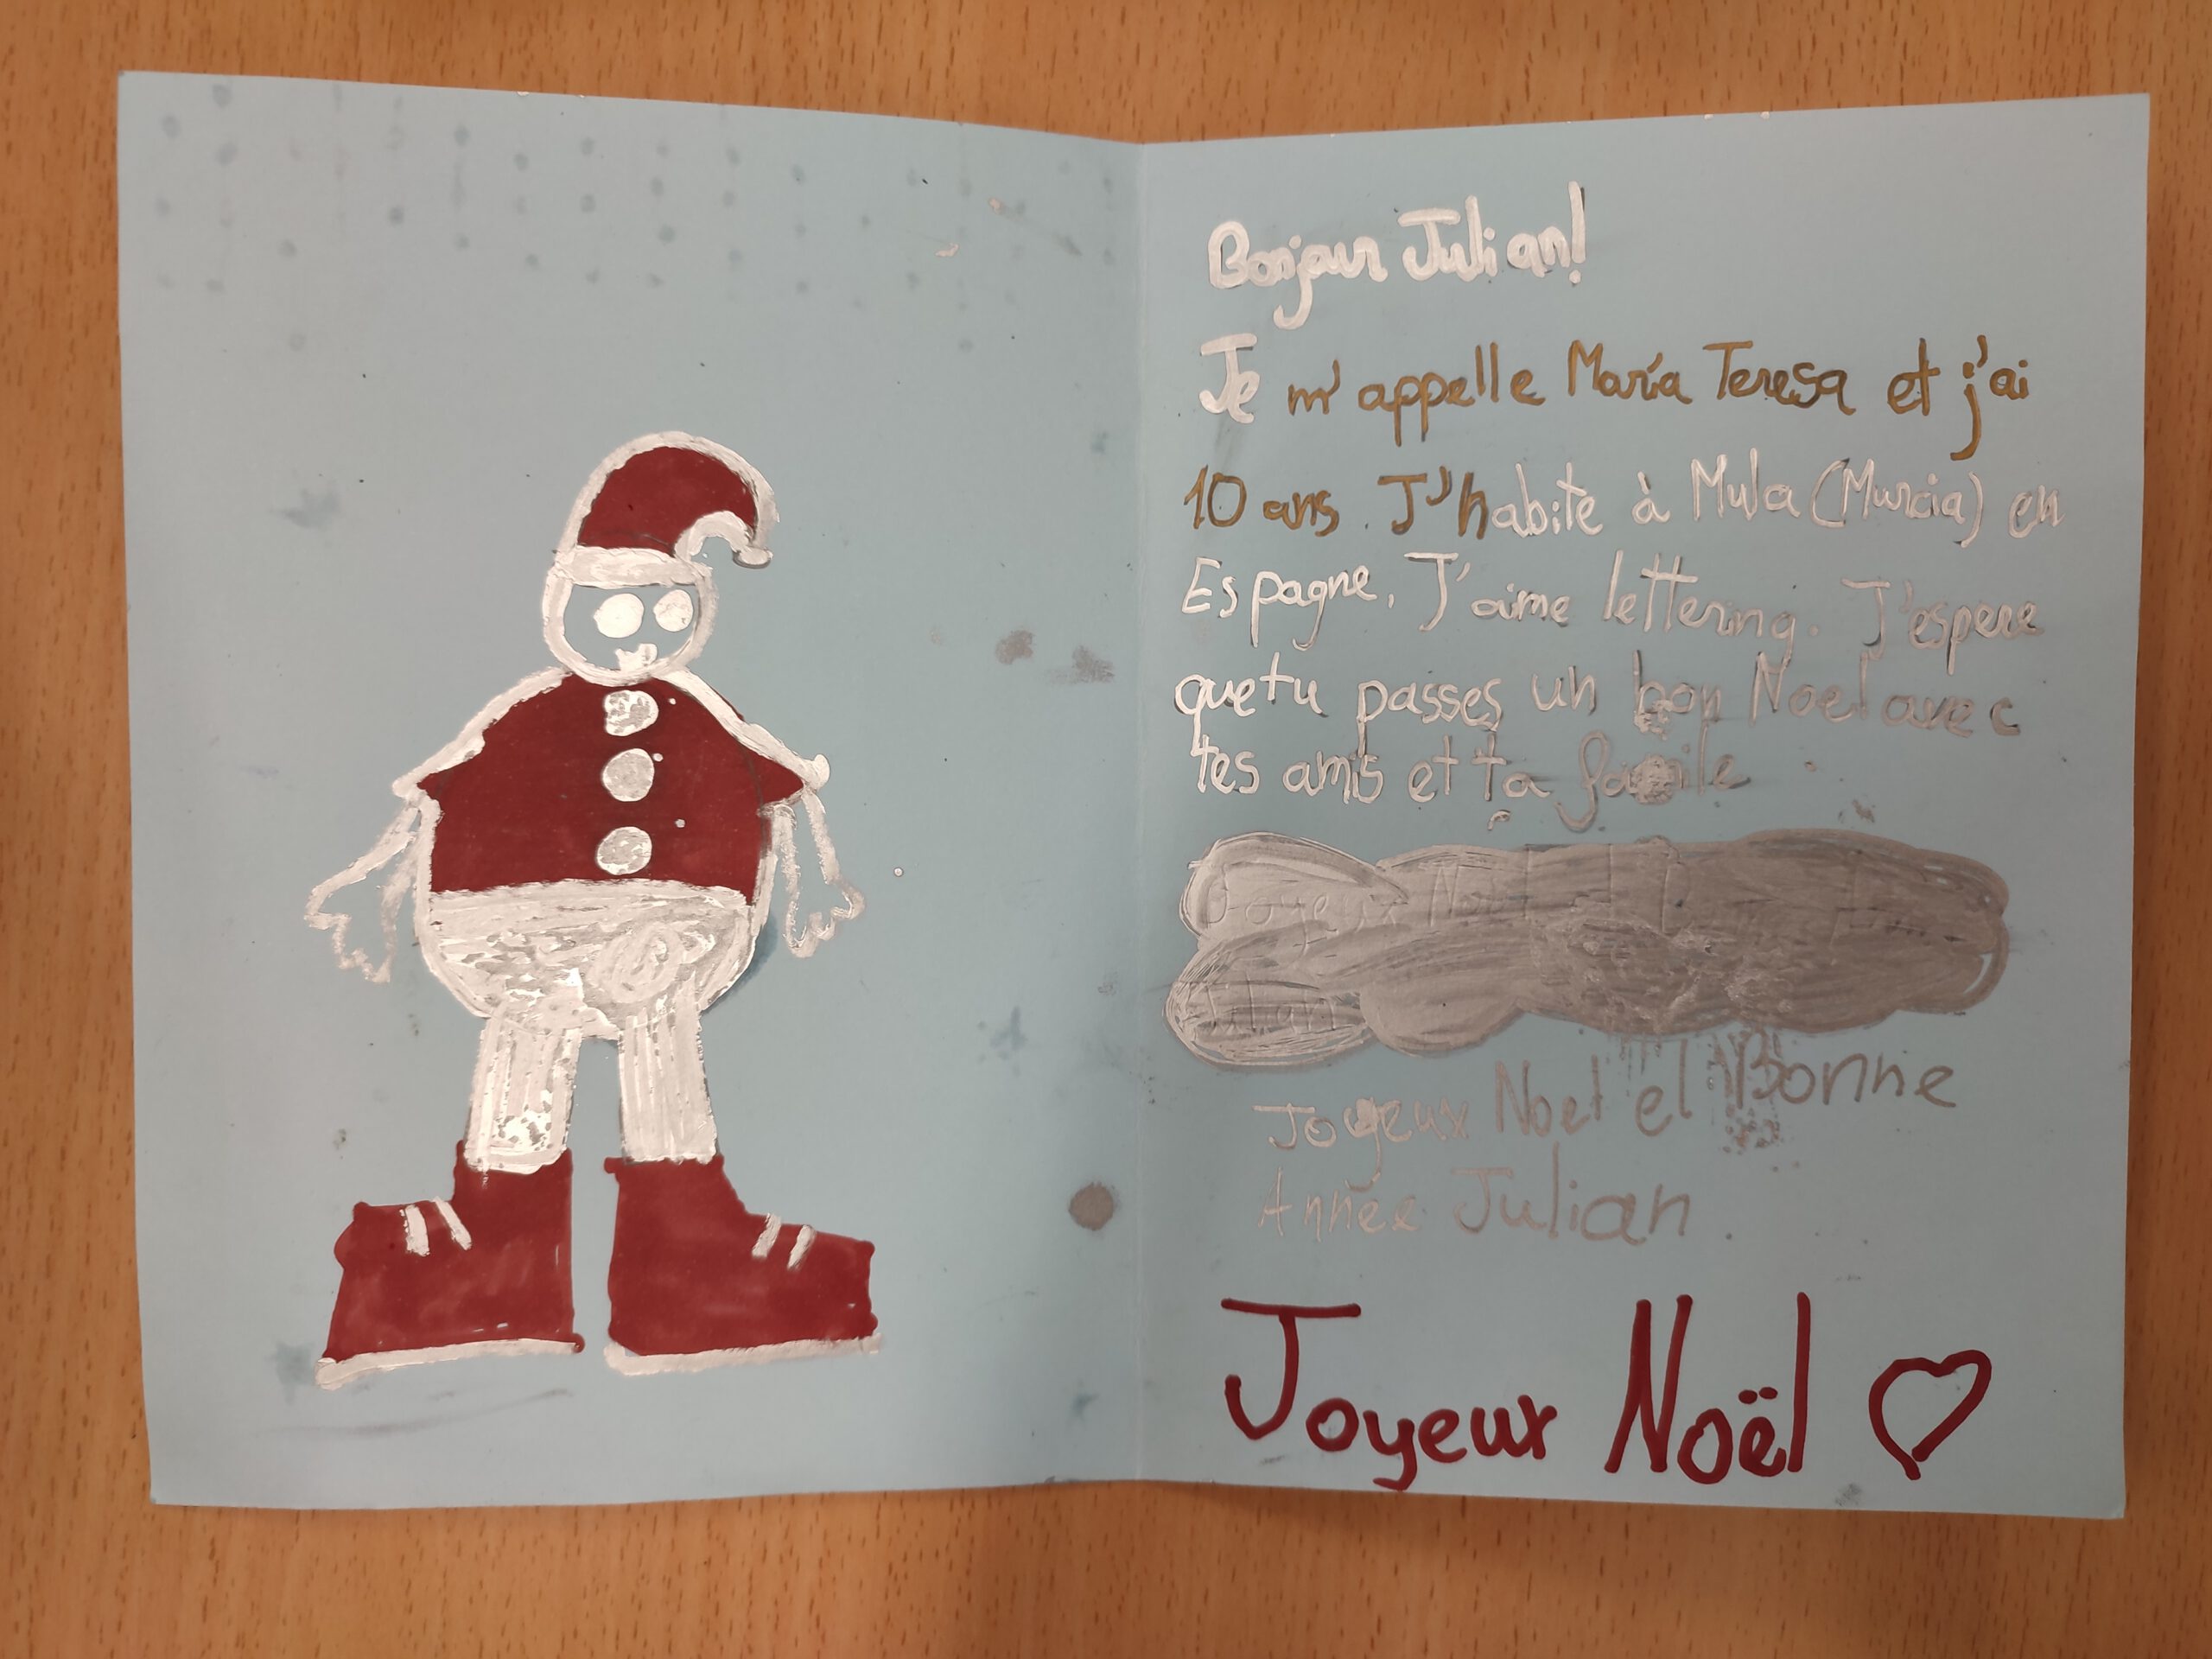 Bonjour Julian!
Je m'appelle María Teresa et j'ai
10 ans. J'habite à Mula (Murcia) en
Espagne. J'aime lettering. J'espere
que tu passes un bon Noel avec
tes amis et ta famile
Joyeux Noel et Bonne
Année Julian.
Joyeux Noël